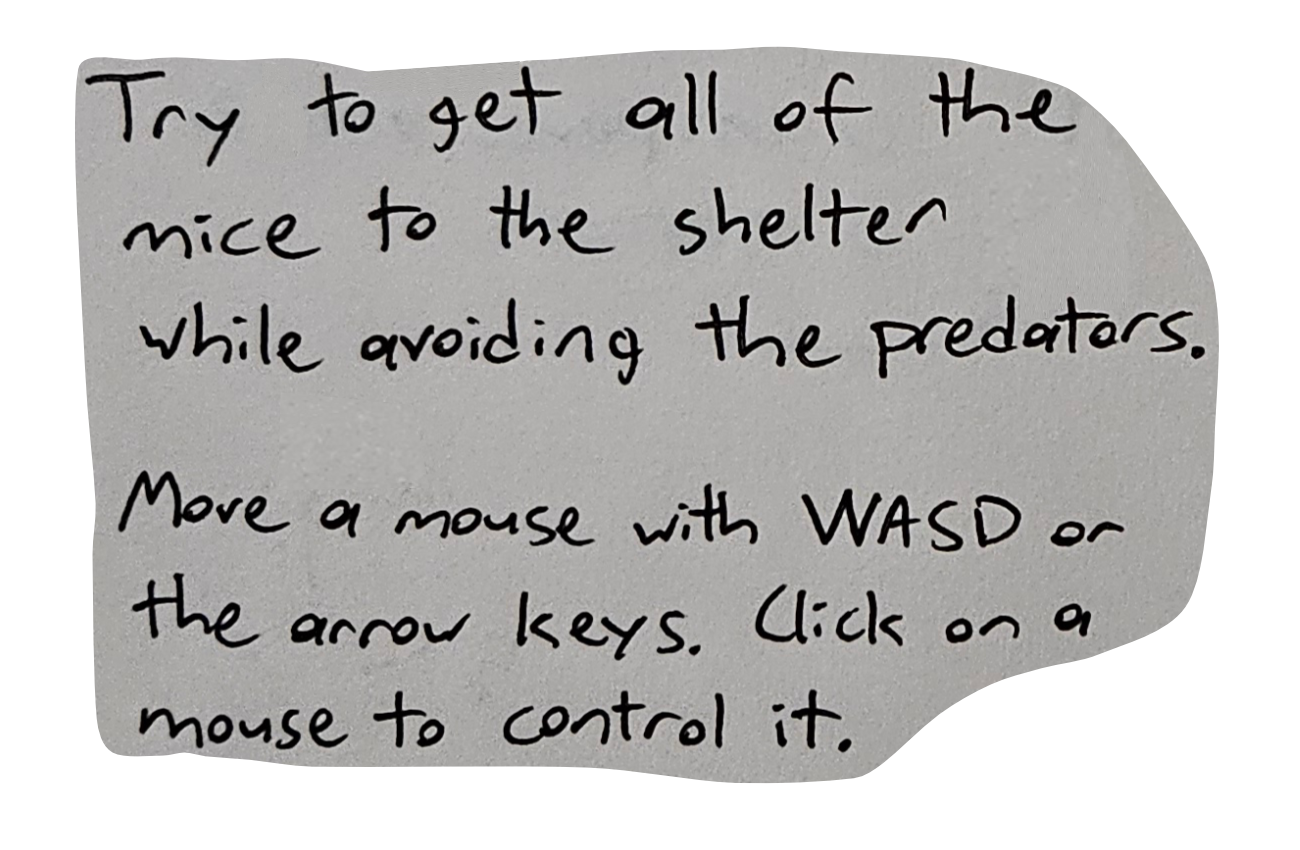 Try to get all of the
mice to the shelter
while avoiding the predators.
Move a mouse with WASD or
the arrow keys. Click on a
mouse to control it.